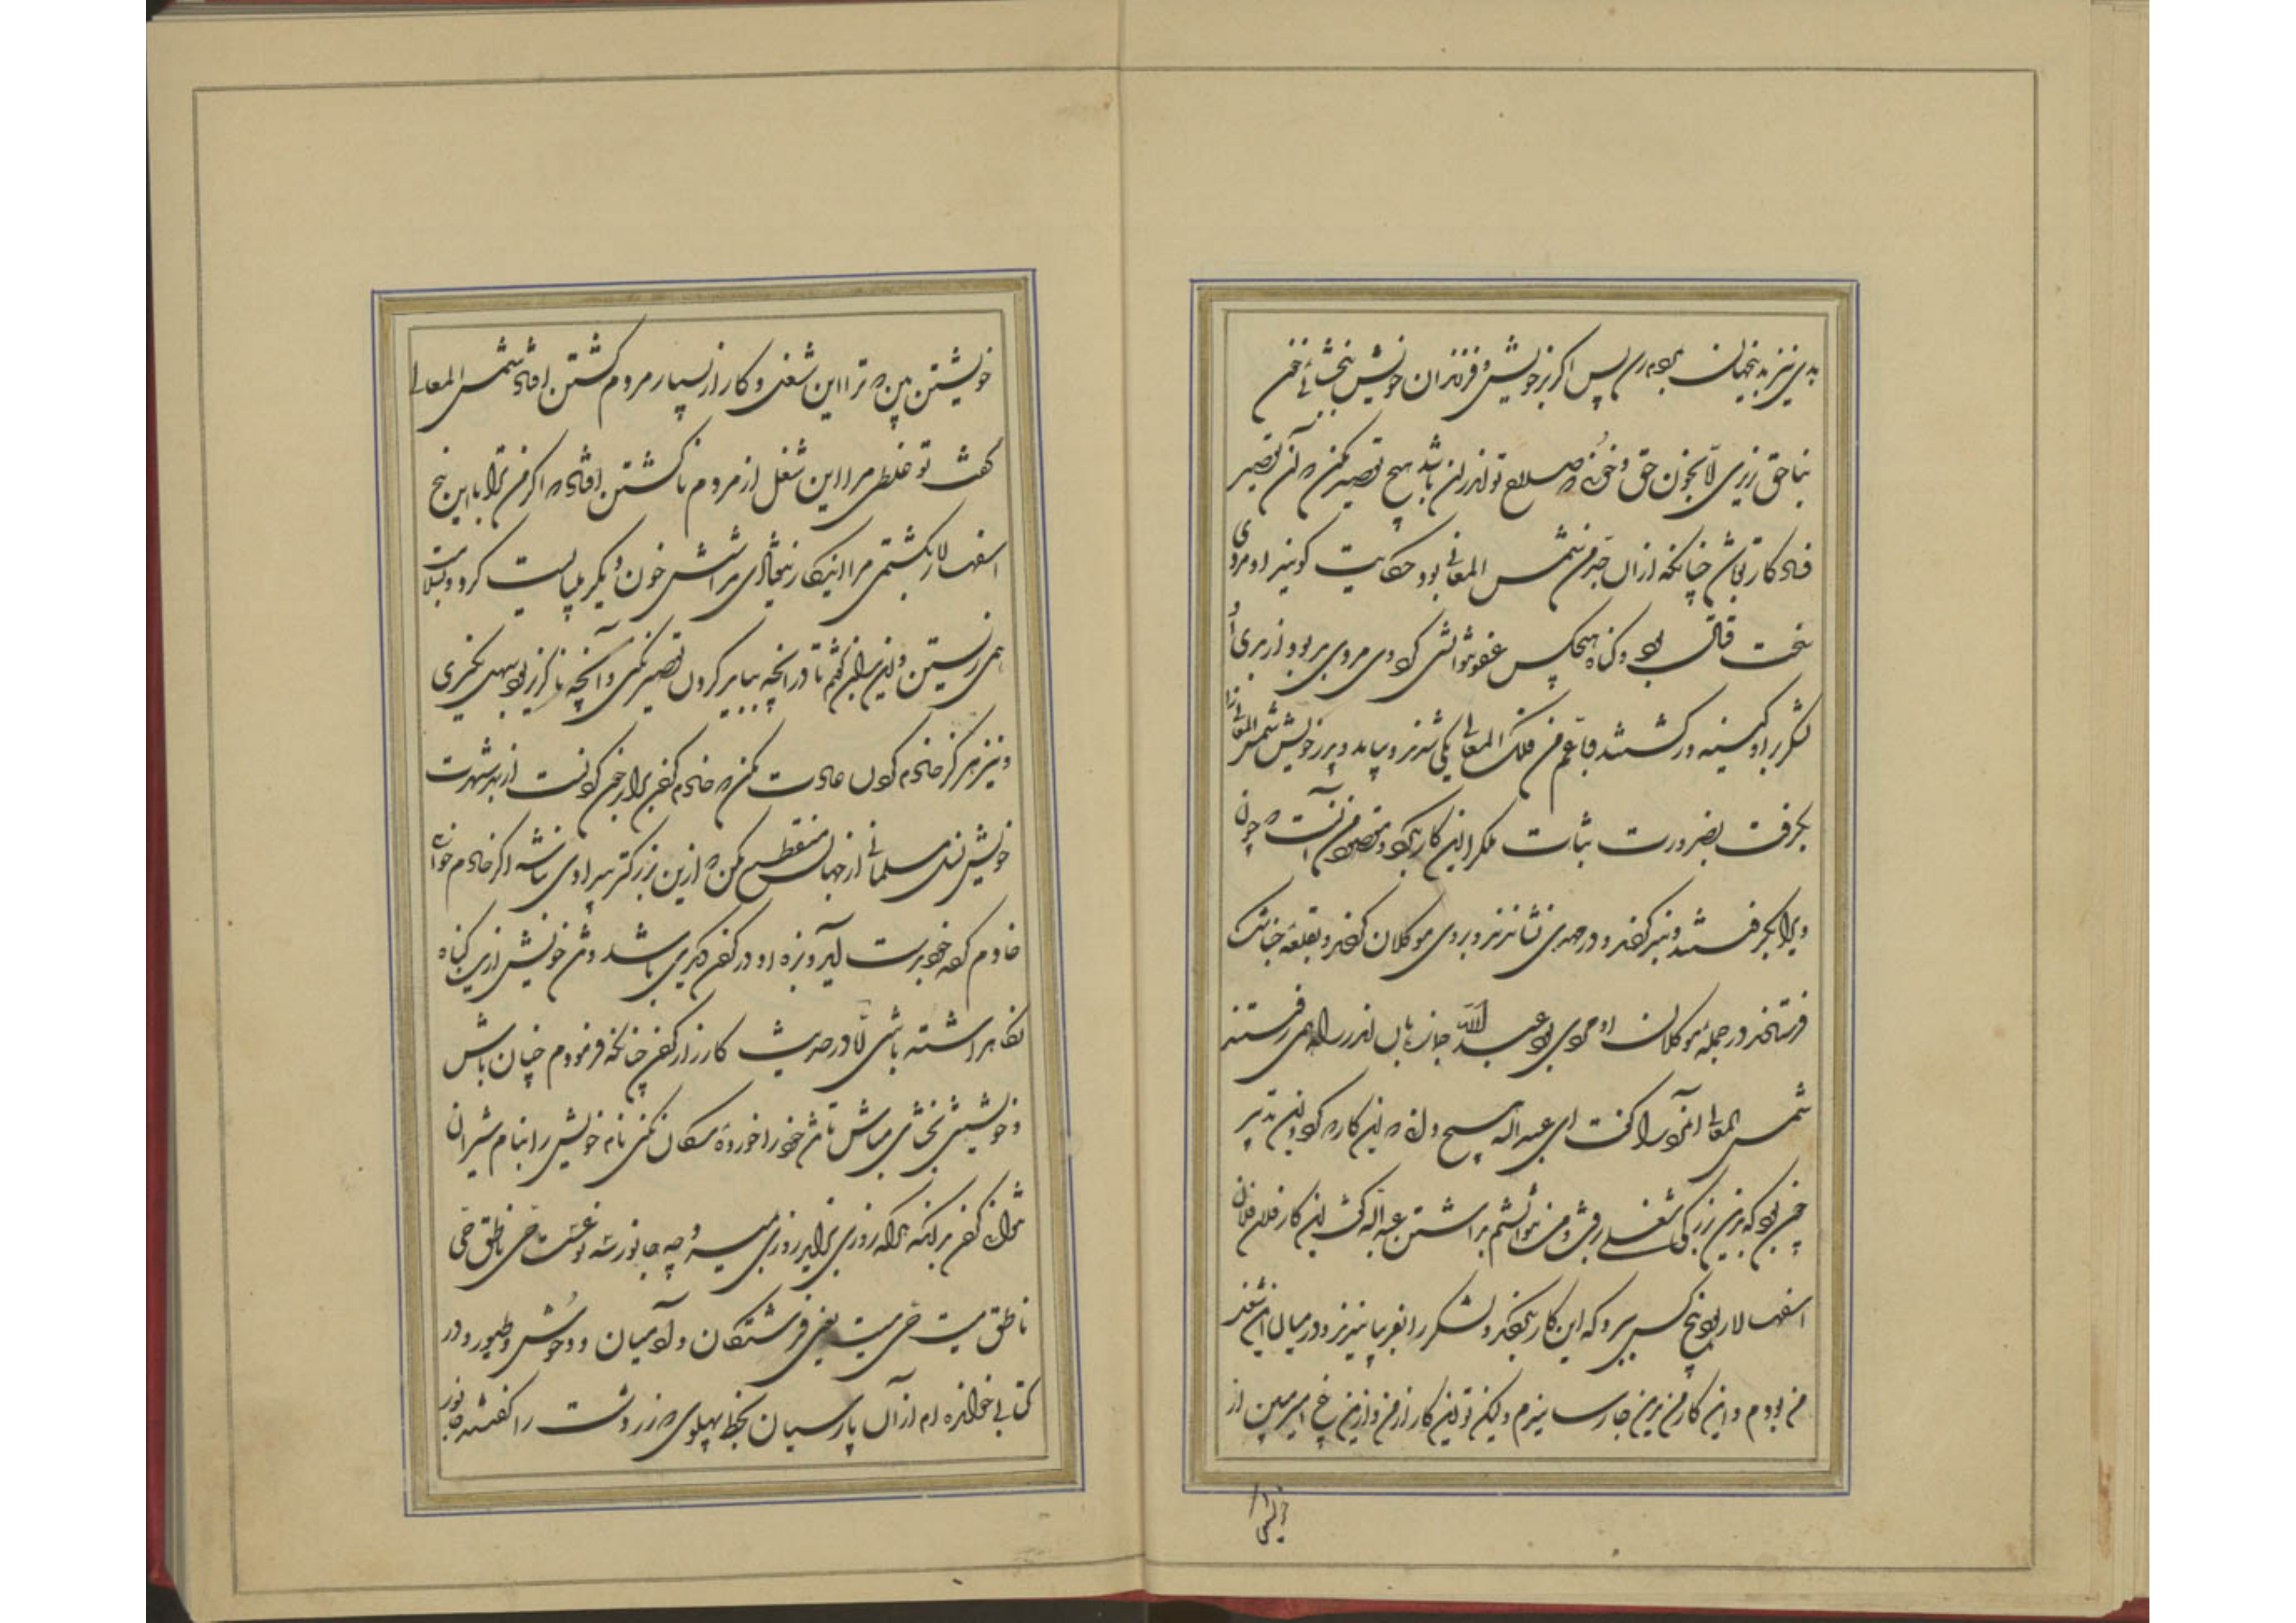 بدی نیز بدیجهان بود پس اگر بر خویش و فرزندان خویش ببخشائی خون
بناحق نریزی الا بخون حق و خونی که صلاح تو اندران باشد هیچ تقصیر مکن که آن تقصیر
فساد کار تو باشد چنانکه از ان جد من شمس المعالی بود حکایت گویند او مردی
سخت قاتل بود و گناه هیچکس عفو نتوانستی کردی مردی بد بود و از بدی او
لشکر بر او کینه ور گشتند با عم من فلک المعالی یکی شدند و بیامد و پدر خویش شمس المعالی را
بگرفت بضرورت
ویرا بگرفتند و بند کردند و در مهدی نشاندند و بر وی موکلان کردند و بقلعه جناشک
فرستادند در جمله موکلان او مردی بود عبدالله جمازبان اندر راه همی رفتند
شمس المعالی این مرد را گفت ای عبدالله هیچ دانی که این کار که کرد و این تدبیر
چون بود که بدین بزرگی شغلی رفت و من نتوانستم دانستن عبدالله گفت این کار فلان و فلان
اسفهسالار بود پنج کس ببرد که این کار بکردند و لشکر را بفریبانیدند و در میان این شغل
من بودم و این کار من بدین جا رسانیدم ولیکن تو این کار از من و ازین پنج اسیر مبین از
خویشتن
خویشتن بین که ترا این شغل و کار از بسیار مردم کشتن افتاد شمس المعالی
گفت تو غلطی مرا این شغل از مردم ناکشتن افتاد که اگر من ترا با این پنج
اسفهسالار بکشتمی مرا اینکار نیفتادی مرا شش خون دیگر میبایست کرد و بسلامت
همی زیستن و این بدان گفتم تا در آنچه بباید کردن تقصیر نکنی و آنچه ناگزیر بود سهل نگیری
و نیز هرگز خادم کردن عادت مکن که خادم کردن برابر خون کردنست از بهر شهوت
خویش نسل مسلمانی از جهان منقطع مکن که ازین بزرگتر بیدادی نباشد اگر خادم خواهی
خادم کرده خود بدست آید و بزه او در گردن دیگری باشد و تن خویش ازین گناه
نگاه داشته باشی اما در حدیث کارزار کردن چنانکه فرمودم چنان باش
و خویشتن بخشای مباش تا تن خود را خورده سگان نکنی نام خویش را بنام شیران
نتوان کردن بدانکه هرکه روزی بزاید روزی بمیرد چه جانور سه نوعست حی ناطق حی
ناطق میت حی میت یعنی فرشتگان و آدمیان و وحوش و طیور و در
کتابی خوانده ام از آن پارسیان بخط پهلوی که زردشت را گفتند جانور